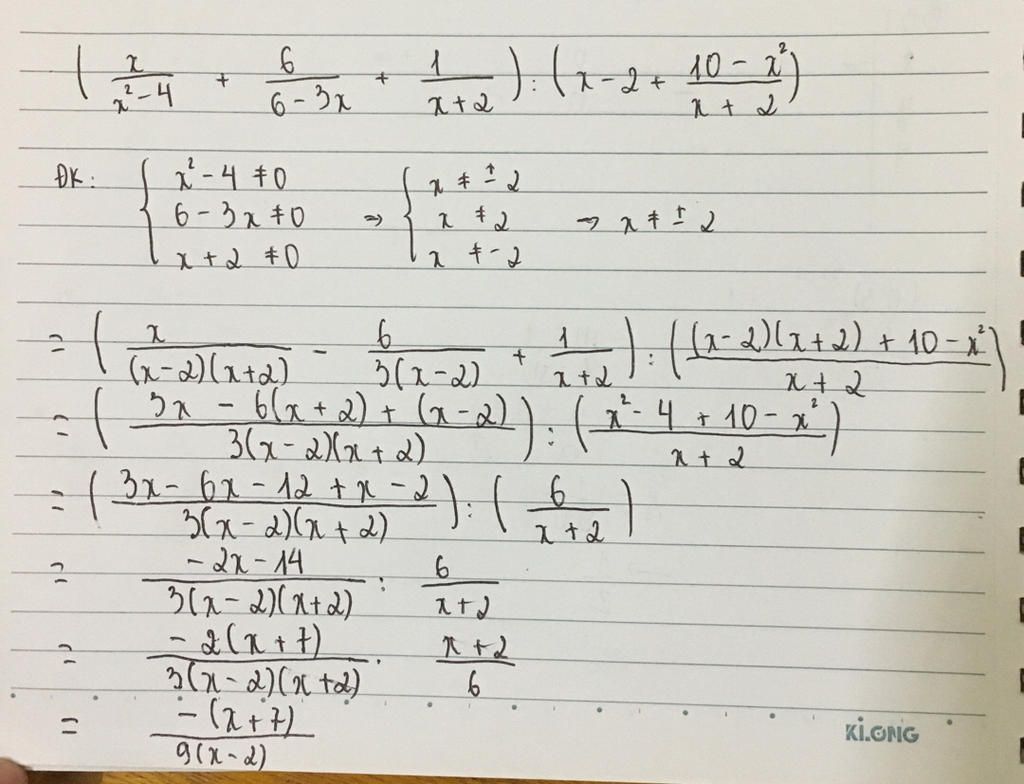 (x/(x² - 4) + 6/(6 - 3x) + 1/(x + 2)) : (x - 2 + (10 - x²)/(x + 2))
ĐK: { x² - 4 ≠ 0 ; 6 - 3x ≠ 0 ; x + 2 ≠ 0 => { x ≠ ± 2 ; x ≠ 2 ; x ≠ -2 => x ≠ ± 2
= (x/((x-2)(x+2)) - 6/(3(x-2)) + 1/(x+2)) : (((x-2)(x+2) + 10 - x²)/(x + 2))
= ((3x - 6(x+2) + (x-2))/(3(x-2)(x+2))) : ((x² - 4 + 10 - x²)/(x + 2))
= ((3x - 6x - 12 + x - 2)/(3(x-2)(x+2))) : (6/(x+2))
= (-2x - 14)/(3(x-2)(x+2)) : 6/(x+2)
= (-2(x+7))/(3(x-2)(x+2)) . (x+2)/6
= (-(x+7))/(9(x-2))
KiLONG